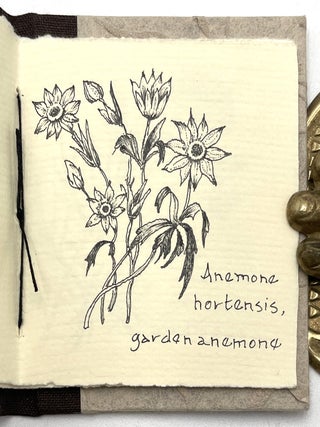 Anemone
hortensis,
garden anemone